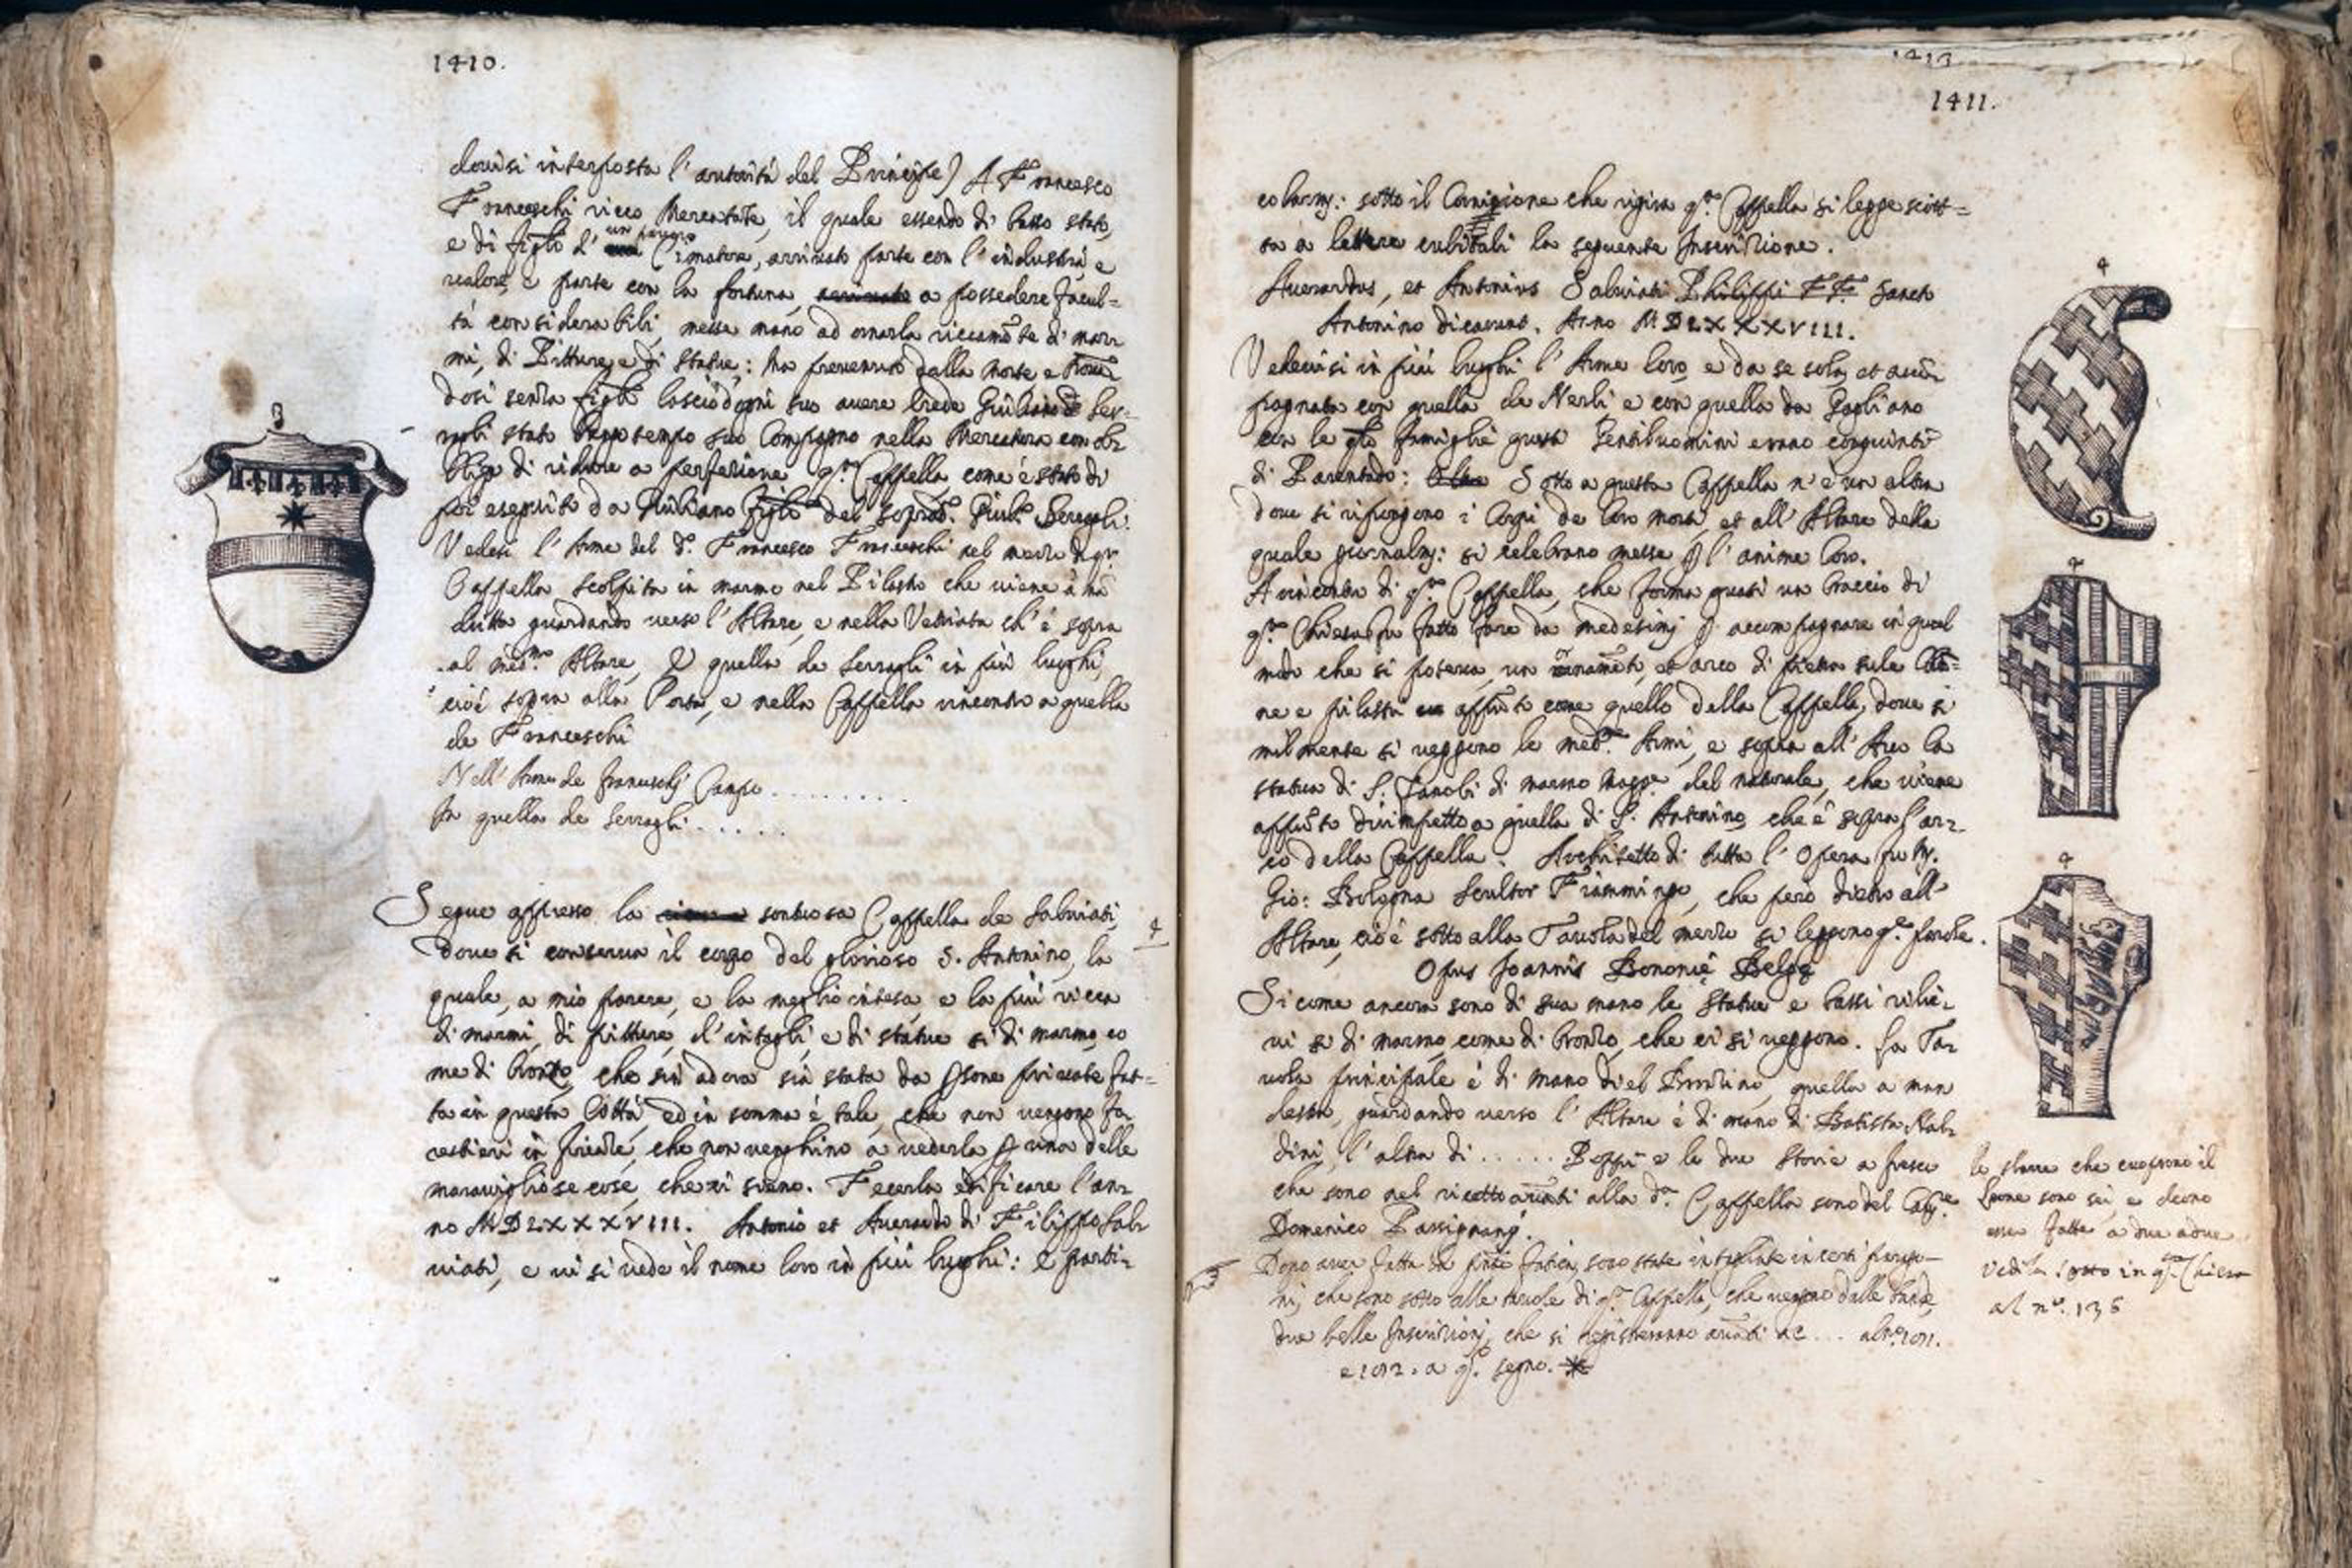 1410.
dovisi interposta l' autorità del Principe) A Francesco
Franceschi ricco Mercatate, il quale essendo di basso stato,
un povero
e di figlo d' Cimatore, arrivato parte con l' industria, e
valore, e parte con la fortuna, a possedere facul=
tà considerabili, messe mano ad ornarla riccamẽte di mar
mi, di Pitture, e di statue: ma prevenuto dalla morte e
dosi senza figli lasciò d'ogni suo avere erede Giuliano Ser-
ragli stato tempo suo Compagno nella Mercatura con ob
bligo di ridurre a perfezione q.ta Cappella come è stato di
poi eseguito da Giuliano figlo del soprad.o Giul.o Seragli.
Vedesi l' Arme del d.o Francesco Franceschi nel mezzo di q.ta
Cappella scolpita in marmo nel Pilastro che viene à mã
dritta guardando verso l' Altare, e nella Vetriata ch' è sopra
al med.mo Altare, E quella de Serragli in più luoghi,
cioè sopra alla Porta, e nella Cappella rincontro a quella
de Franceschi
Nell' Arme de Franceschi Campo ........
In quella de Serragli .....
Segue appresso la sontuosa Cappella de Salviati,
4
dove si conserva il corpo del glorioso S. Antonino, la
quale, a mio parere, e la meglio intesa, e la più ricca
di marmi, di pitture, d' intagli, e di statue si di marmo, co
me di bronzo, che sin ad ora sia stata da psone private fat=
ta in questa Città, ed in somma è tale, che non vengono fo
restieri in Firenze, che non venghino a vederla p una delle
maravigliose cose, che vi sieno. Fecerla edificare l' an
no MDLXXXVIII. Antonio et Averardo di Filippo Sal
viati, e vi si vede il nome loro in più luoghi: E parti=
3
1413
1411.
colarm.: sotto il Cornicione che rigira q.ta Cappella si legge scrit=
ta a lettere cubitali la seguente Inscrizione.
Averardus, et Antonius Salviati Philippi FF. Sancto
Antonino dicarunt. Anno MDLXXXVIII.
Vedevisi in più luoghi l' Arme loro, e da se sola, et accõ
pagnata con quella de Nerli e con quella da Gagliano
con le q.li famiglie questi Gentiluomini erano congiunti
di Parentado: Sotto a questa Cappella n' è un altra
dove si ripongono i Corpi de loro morti, et all' Altare della
quale giornalm.: si celebrano messe p l' anime loro.
A rincontro di q.ta Cappella, che forma quasi un braccio di
q.ta Chiesa, fu fatto fare da medesimi p accompagnare in quel
modo che si poteva, un ornamẽto, et arco di pietra sule Colõ=
ne e pilastri appũto come quello della Cappella, dove si
milmente si veggono le med.me Armi, e sopra all' Arco la
statua di S. Zanobi di marmo magg.e del naturale, che viene
appũto dirimpetto a quella di S. Antonino, che è sopra l' ar-
co della Cappella. Architetto di tutta l' Opera fu M.
Gio: Bologna Scultor Fiammingo, che però dietro all'
Altare, cioè sotto alla Tavola del mezzo si leggono q.te parole.
Opus Joannis Bononię Belgę
Si come ancora sono di sua mano le statue e bassi rilie-
vi si di marmo, come di bronzo, che vi si veggono. La Ta-
vola principale è di mano del Bronzino, quella a man
destra, guardando verso l' Altare è di mano di Batista Nal-
dini, l' altra di ..... Poppi e le due storie a fresco
che sono nel ricetto avãti alla d.a Cappella sono del Cav.re
Domenico Passignani.
Dopo aver fatta sono state intagliate in certi
ni, che sono sotto alle tavole di q.ta Cappella, che vegono dalle bande,
due belle Inscrizioni, che si registeranno avãti a c ... al n.o 1011.
e 1012. a q.o segno. *
4
4
4
le sbarre che cuoprono il
Leone sono sei, e deono
esser fatte a due a due
Vedila sotto in q.ta Chiesa
al n.o 136